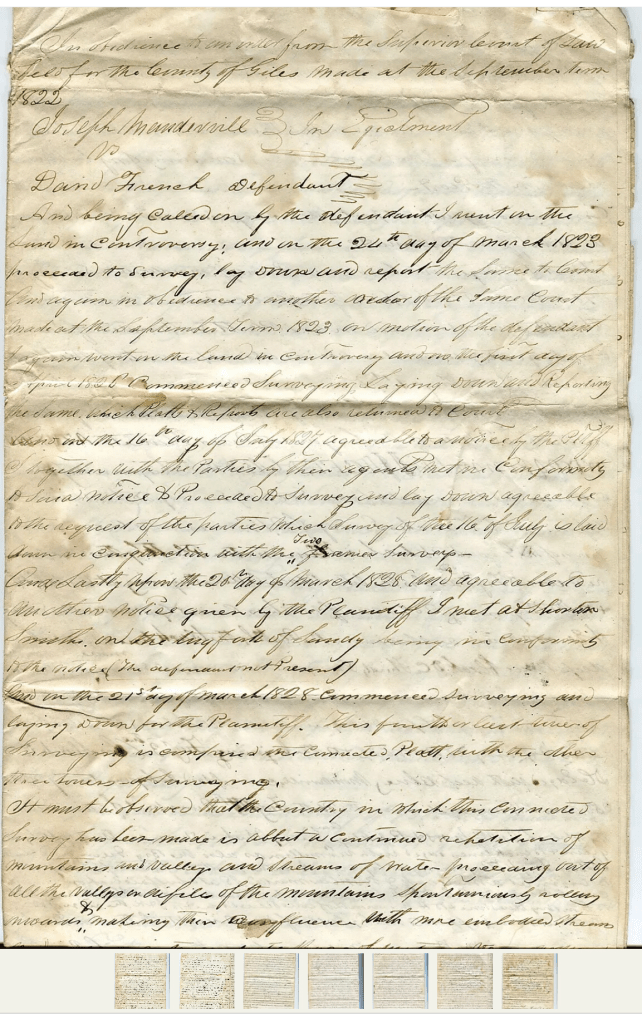 In obedience to an order from the Superior Court of Law
held for the County of Giles made at the September term
1822
Joseph Mandervill In Ejectment
vs
David French Defendant
And being called on by the defendant I went on the
Land in Controversy, and on the 24th day of March 1823
proceeded to Survey, lay down and report the Same to Court
And again in obedience to another order of the Same Court
made at the September Term 1823, on motion of the defendant
I again went on the land in Controversy and on the first day of
April Commenced Surveying Laying down and Reporting
the Same, which Platt & Reports are also returned to Court
And on the 16th day of July 1827 agreeable to a notice by the
Together with the Parties by their agents met in Conformity
to Said notice & Proceeded to Survey and lay down agreeable
to the request of the parties which Survey of the 16th of July is laid
down in Conjunction with the Two former Surveys -
And Lastly upon the 20th day of March 1828 and agreeable to
another notice given by the Plaintiff I met at
Smiths, on the tug fork of Sandy being in conformity
to the notice (The defendant not Present)
And on the 21st day of March 1828 Commenced Surveying and
laying down for the Plaintiff. This fourth or last tour of
Surveying is comprised in Connected Platt, with the other
three tours of Surveying.
It must be observed that the Country in which this Connected
Survey has been made is a continued
mountains and valleys and streams of water proceeding out of
all the valleys or defiles of the mountains
& making their Confluence with more embodied Streams